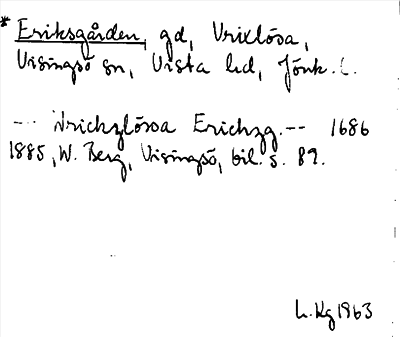 * Eriksgården, gd, Vrixlösa,
Visingsö sn, Vista hd, Jönk. l.
--- Wrichzlössa Erichzg. -- 1686
1885, W. Berg, Visingsö, bil. s. 89.
L. Kg 1963